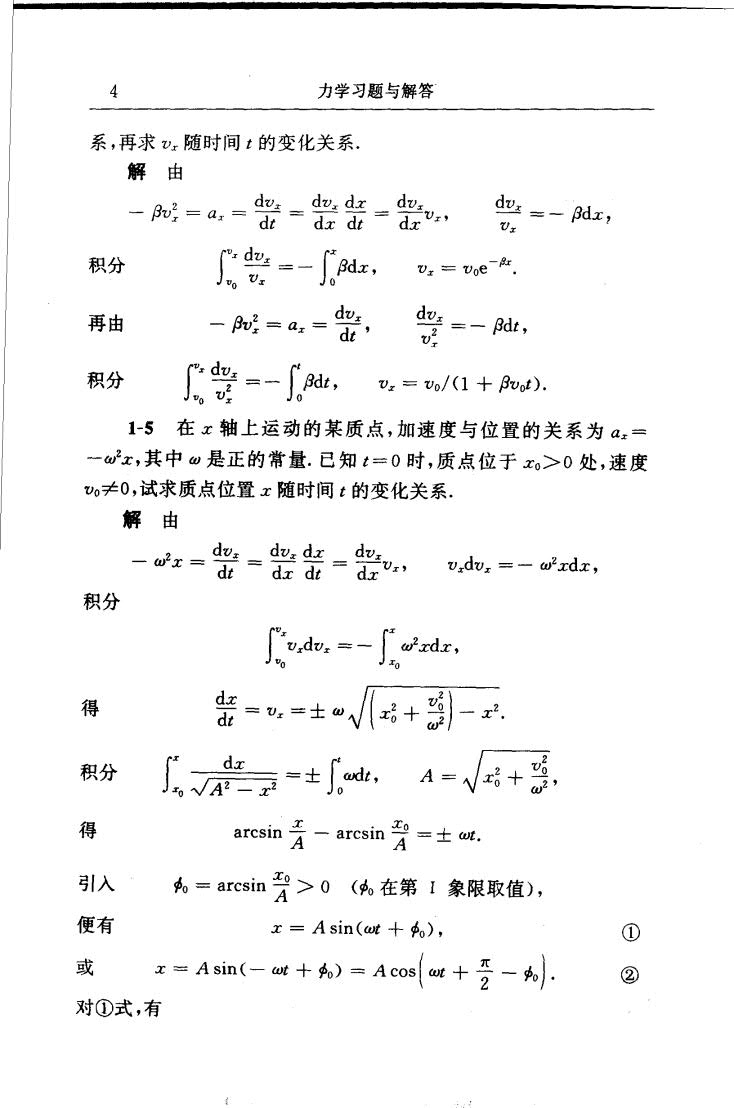 4 力学习题与解答
系,再求 vₓ 随时间 t 的变化关系.
解 由
− βvₓ² = aₓ = dvₓ/dt = dvₓ/dx dx/dt = dvₓ/dx vₓ, dvₓ/vₓ = − βdx,
积分 ∫_{v₀}^{vₓ} dvₓ/vₓ = − ∫_0^x βdx, vₓ = v₀e^{−βx}.
再由 − βvₓ² = aₓ = dvₓ/dt, dvₓ/vₓ² = − βdt,
积分 ∫_{v₀}^{vₓ} dvₓ/vₓ² = − ∫_0^t βdt, vₓ = v₀/(1 + βv₀t).
1-5 在 x 轴上运动的某质点,加速度与位置的关系为 aₓ=
−ω²x,其中 ω 是正的常量.已知 t=0 时,质点位于 x₀>0 处,速度
v₀≠0,试求质点位置 x 随时间 t 的变化关系.
解 由
− ω²x = dvₓ/dt = dvₓ/dx dx/dt = dvₓ/dx vₓ, vₓdvₓ = − ω²xdx,
积分
∫_{v₀}^{vₓ} vₓdvₓ = − ∫_{x₀}^x ω²xdx,
得 dx/dt = vₓ = ± ω√((x₀² + v₀²/ω²) − x²).
积分 ∫_{x₀}^x dx/√(A² − x²) = ± ∫_0^t ωdt, A = √(x₀² + v₀²/ω²),
得 arcsin x/A − arcsin x₀/A = ± ωt.
引入 ϕ₀ = arcsin x₀/A > 0 (ϕ₀ 在第 I 象限取值),
便有 x = A sin(ωt + ϕ₀), ①
或 x = A sin(− ωt + ϕ₀) = A cos(ωt + π/2 − ϕ₀). ②
对①式,有